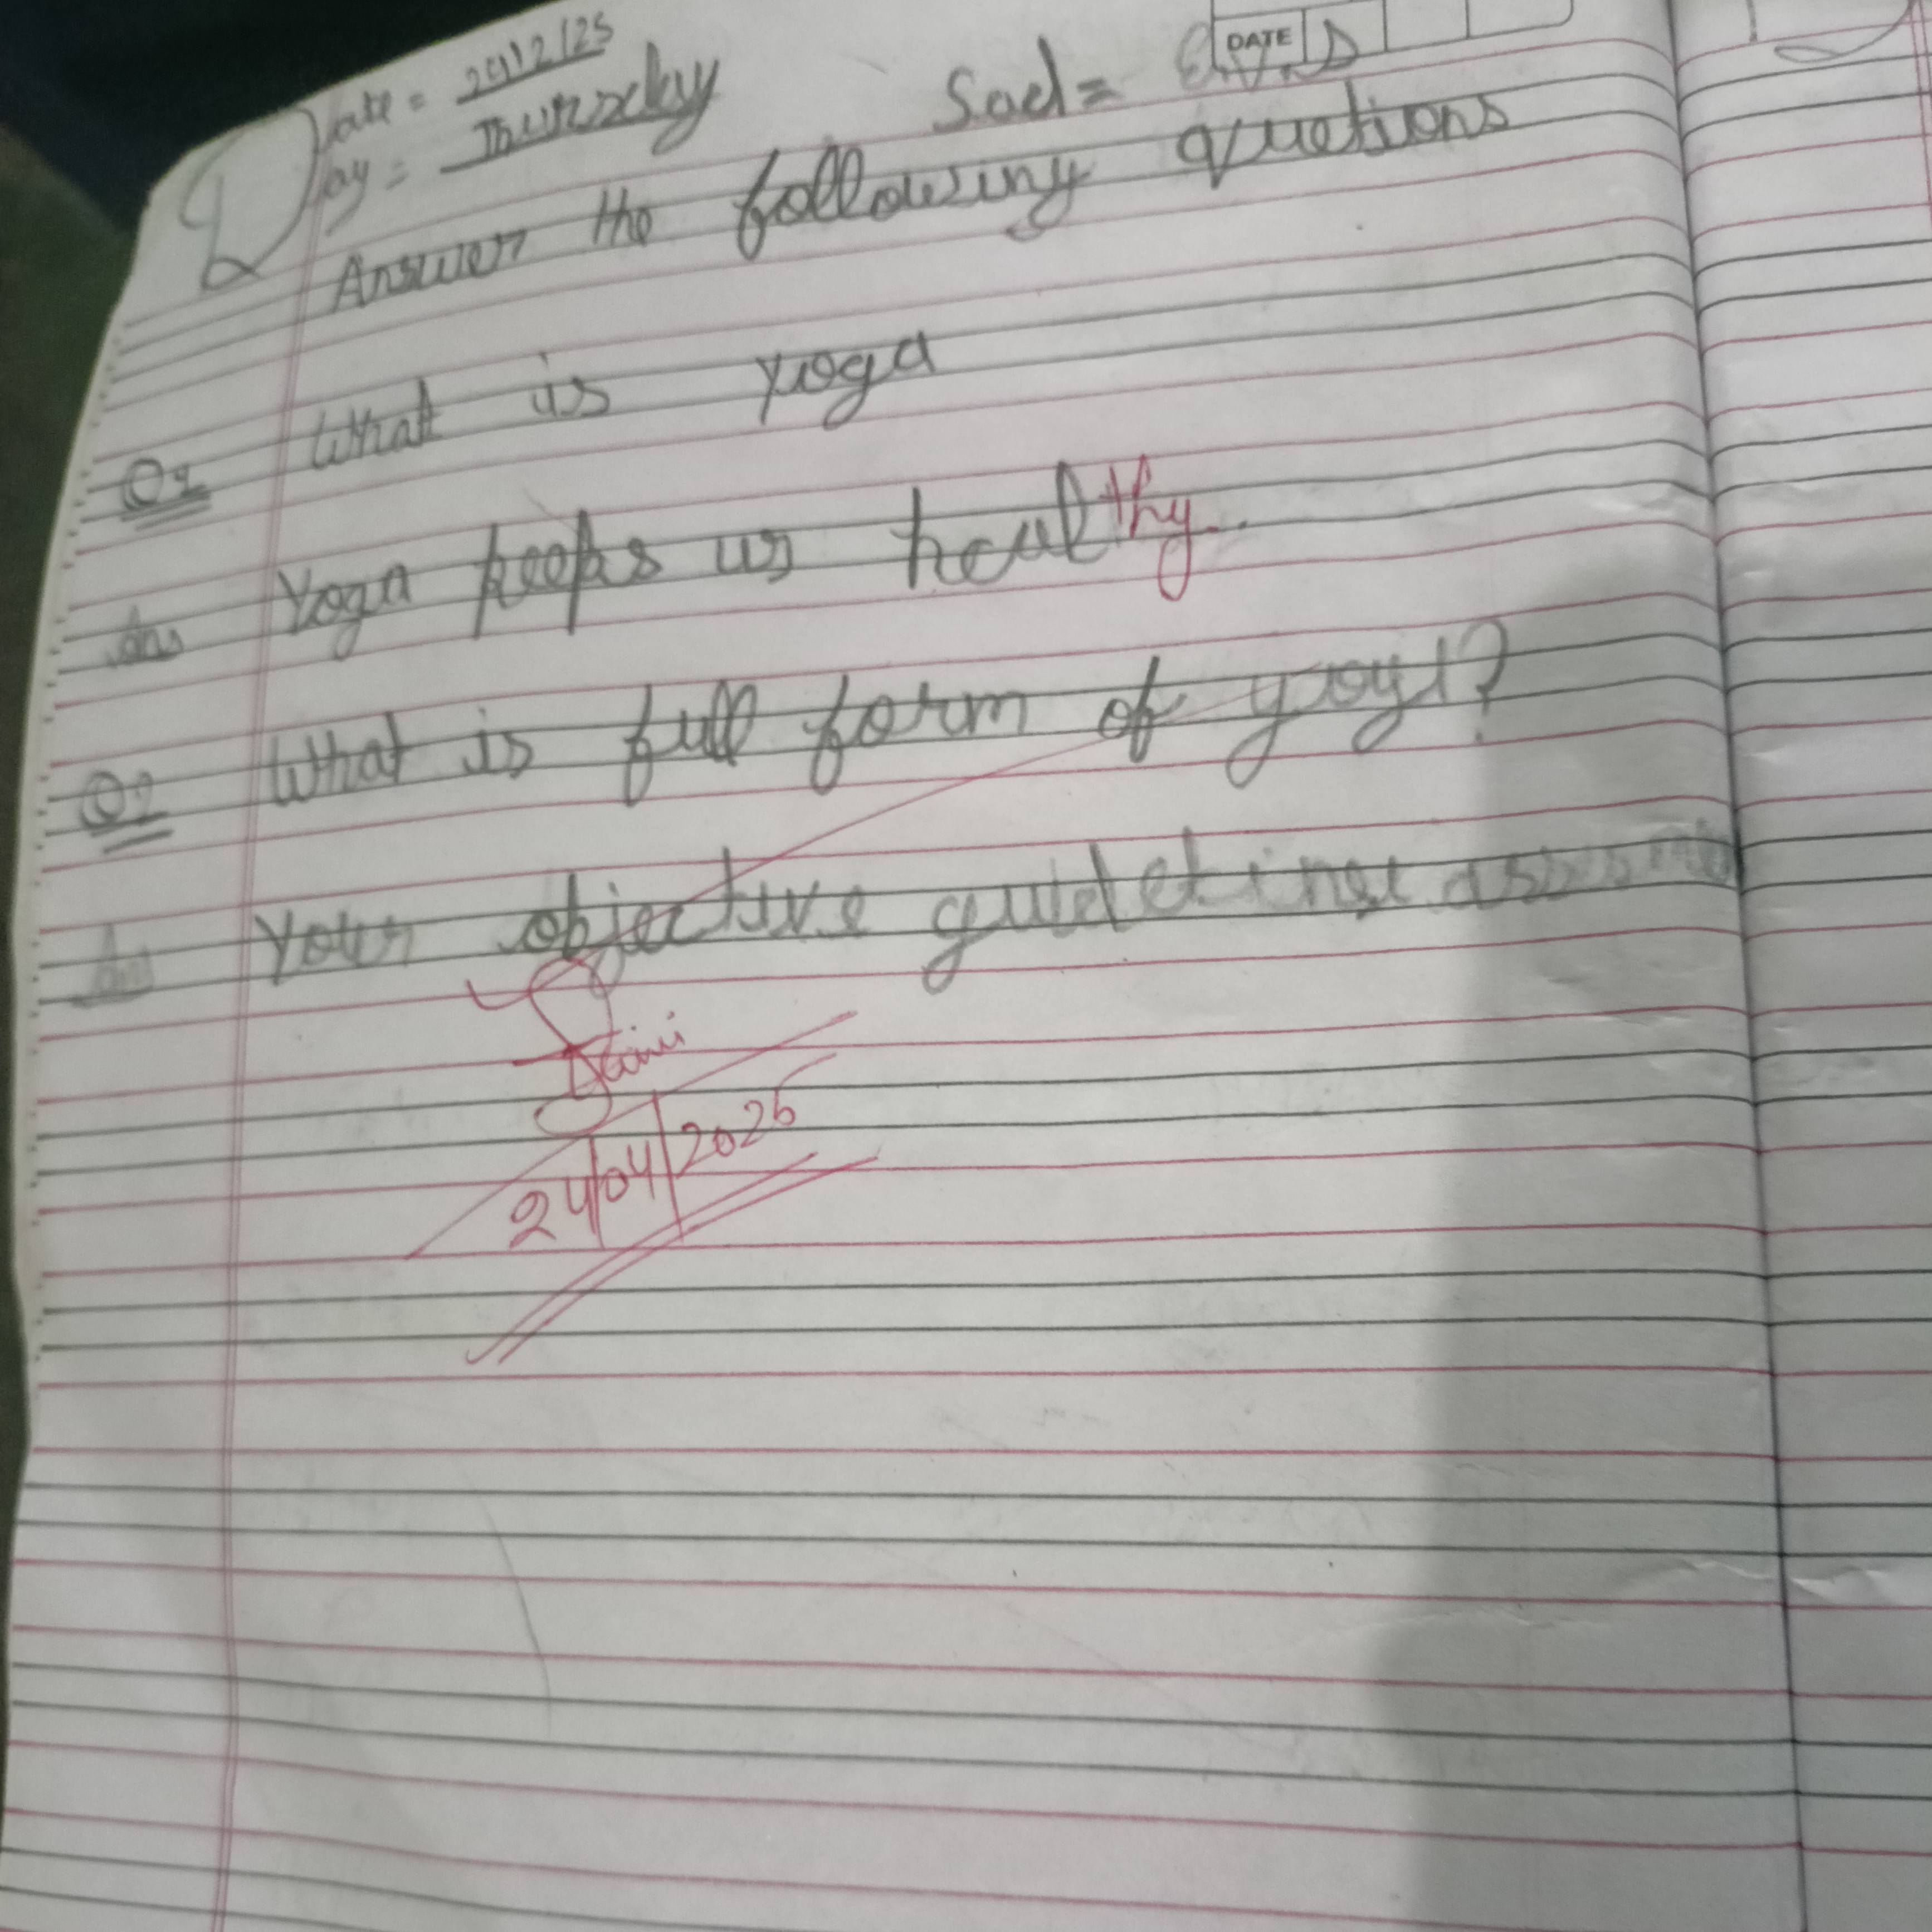 DATE
Date = 24/12/25
Day = Thursday Sad =
Answer the following quetions
Q1 What is yoga
Ans Yoga keeps us healthy.
Q2 What is full form of yoga?
Ans Your objective
24/04/2026